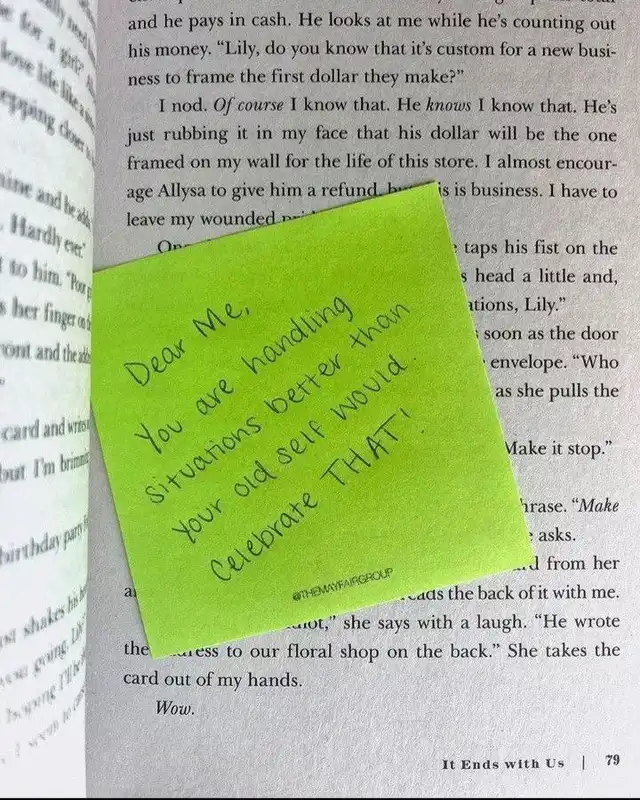 and he pays in cash. He looks at me while he's counting out
his money. "Lily, do you know that it's custom for a new busi-
ness to frame the first dollar they make?"
I nod. Of course I know that. He knows I know that. He's
just rubbing it in my face that his dollar will be the one
framed on my wall for the life of this store. I almost encour-
age Allysa to give him a refund, is is business. I have to
leave my wounded
taps his fist on the
s head a little and,
ations, Lily."
soon as the door
envelope. "Who
as she pulls the
Make it stop."
hrase. "Make
asks.
from her
ads the back of it with me.
she says with a laugh. "He wrote
the ress to our floral shop on the back." She takes the
card out of my hands.
Wow.
Dear Me,
You are handling
situations better than
your old self would.
Celebrate THAT!
@THEMAYFAIRGROUP
It Ends with Us | 79
for a girl?
love life like a
epping closer
and he
Hardly ever."
to him.
her finger on
ront and the
card and
but I'm
birthday party
shakes his
you going,
hoping I'll be
I seem to